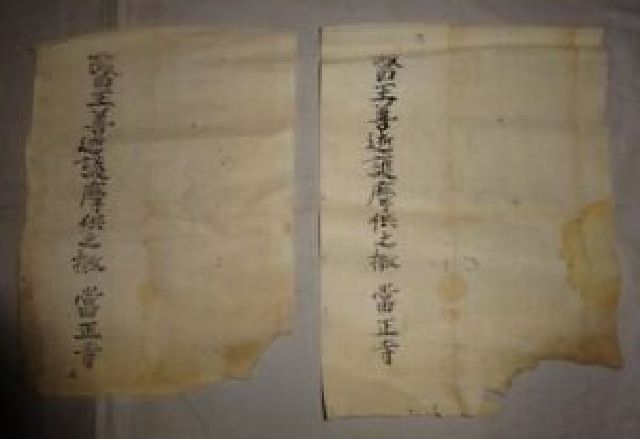 醫王善逝護摩供之 當正寺
醫王善逝護摩供之 當正寺